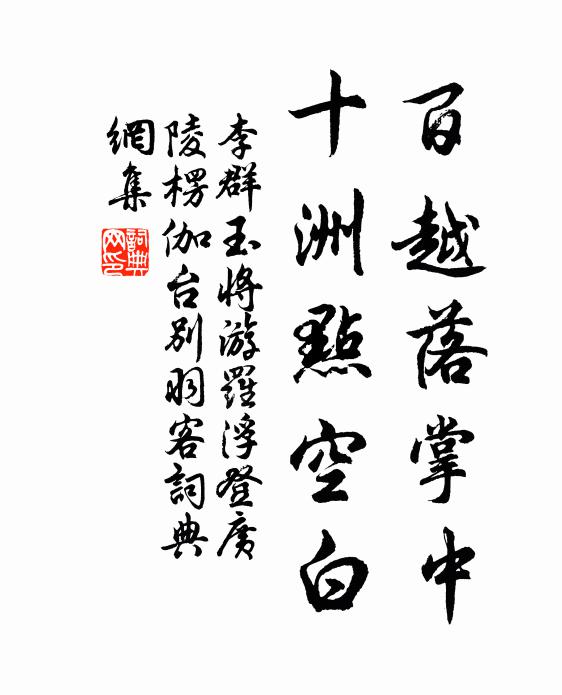 百越落掌中
十洲點空白
李群玉將游羅浮登廣
陵楞伽台別羽客詞典
網集
詞典
网印